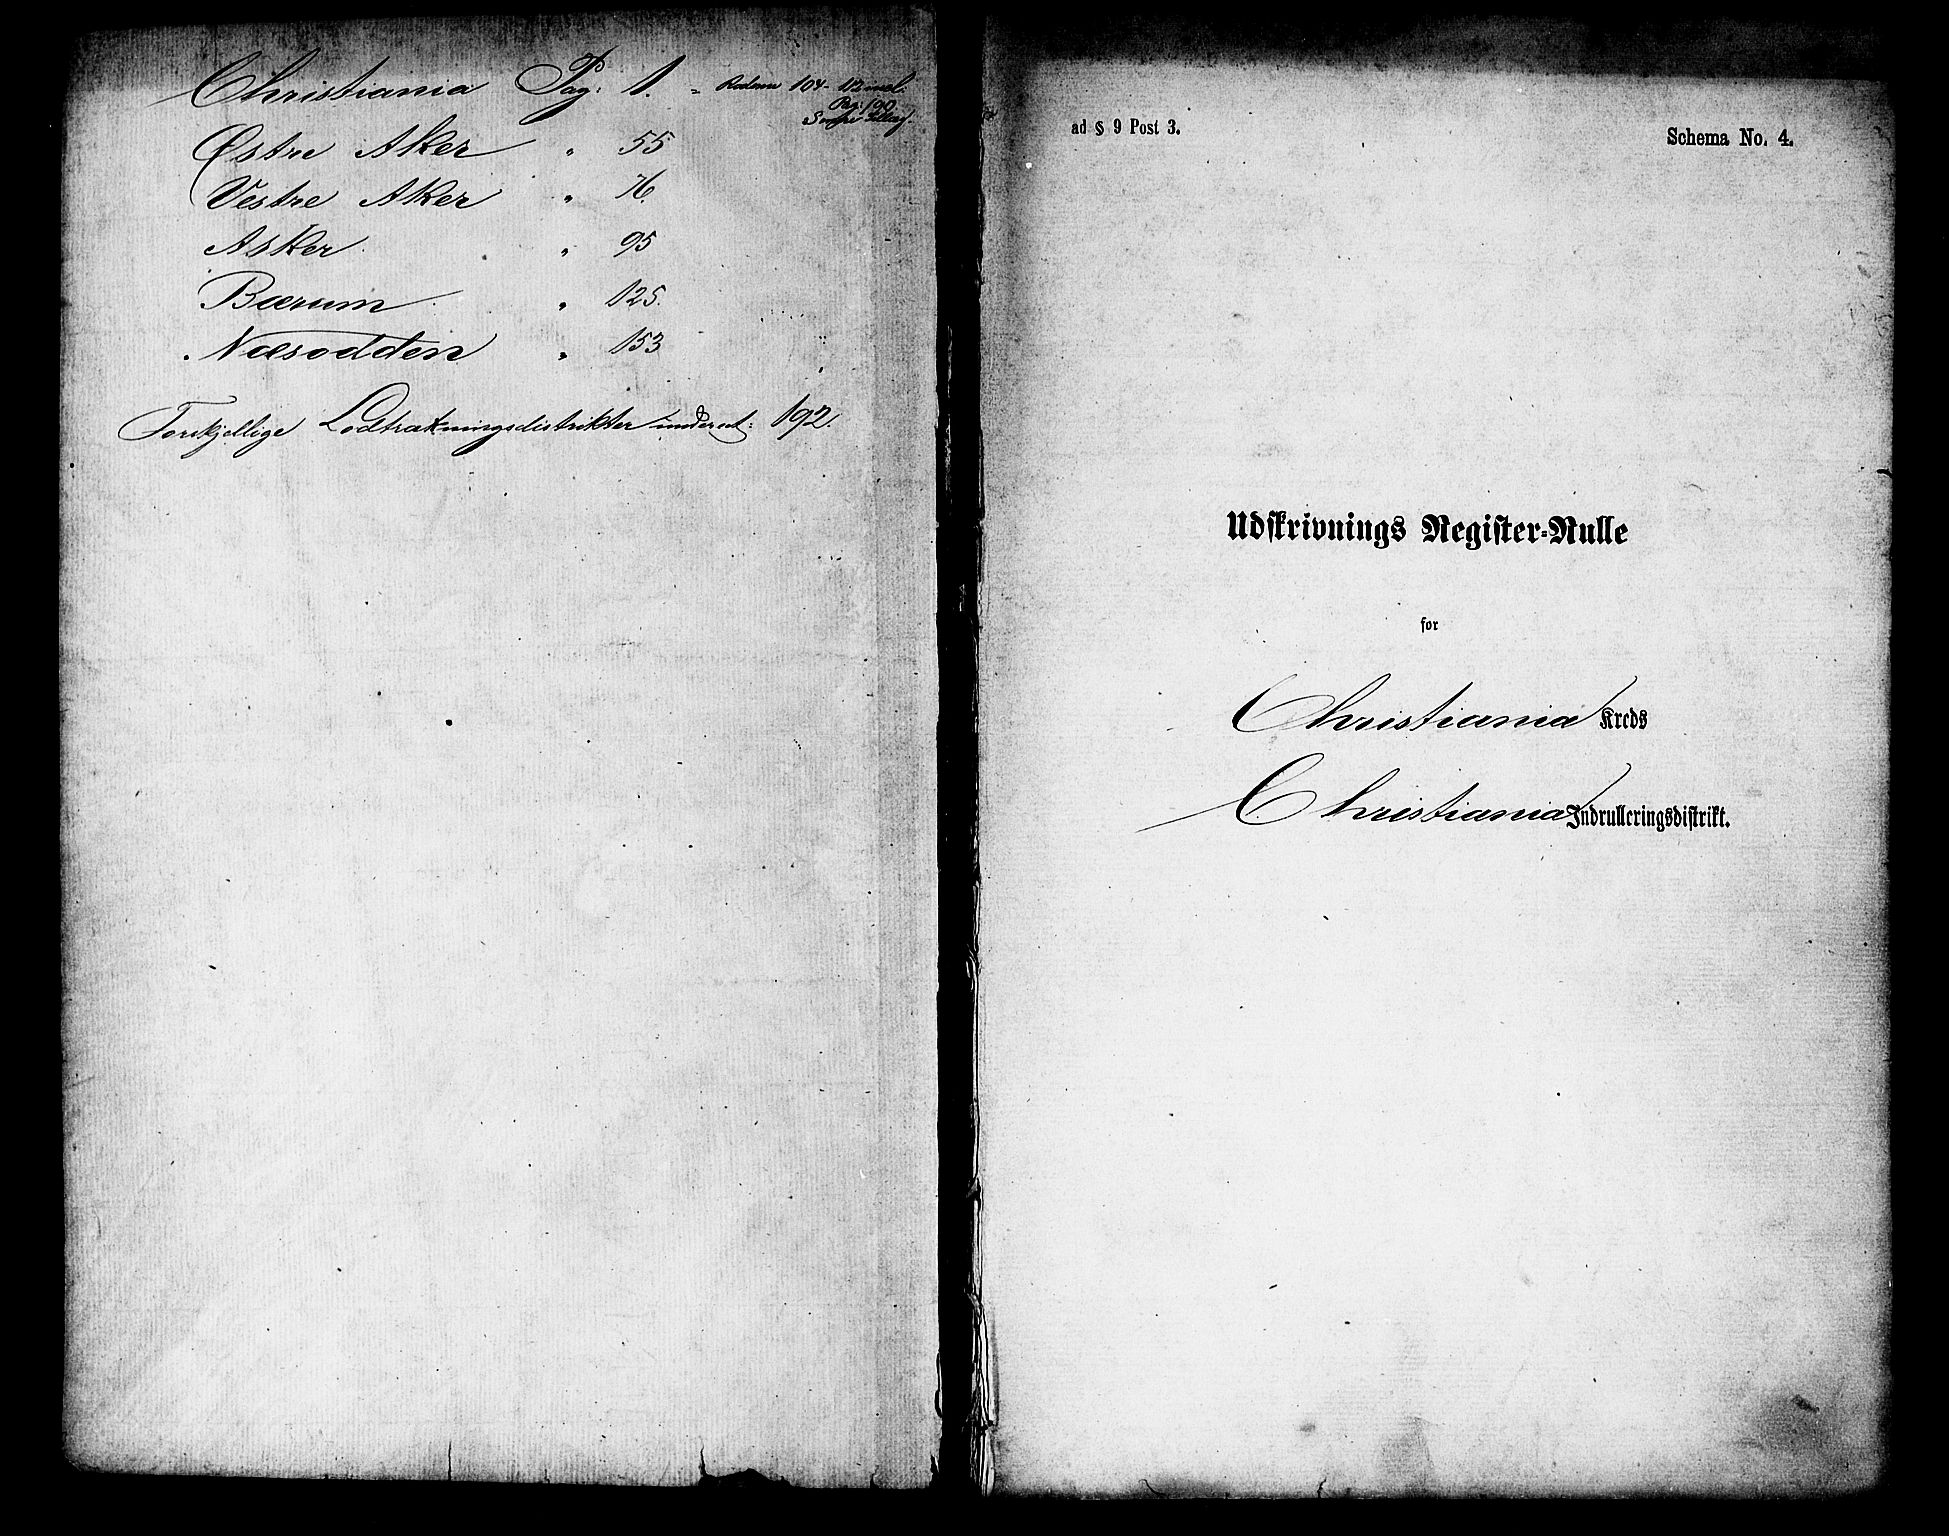 Christiania Pag: 1. = Roderne 104-112 incl.
Pag: 190
Østre Aker " 55
Vestre Aker " 76.
Asker " 95
Bærum " 125.
Næsodden " 153
Forskjellige Lodtrækningsdistrikter 192.
ad § 9 Post 3.
Schema No. 4.
Udskrivnings Register-Rulle
for
Christiania Kreds
Christiania Indrulleringsdistrikt.